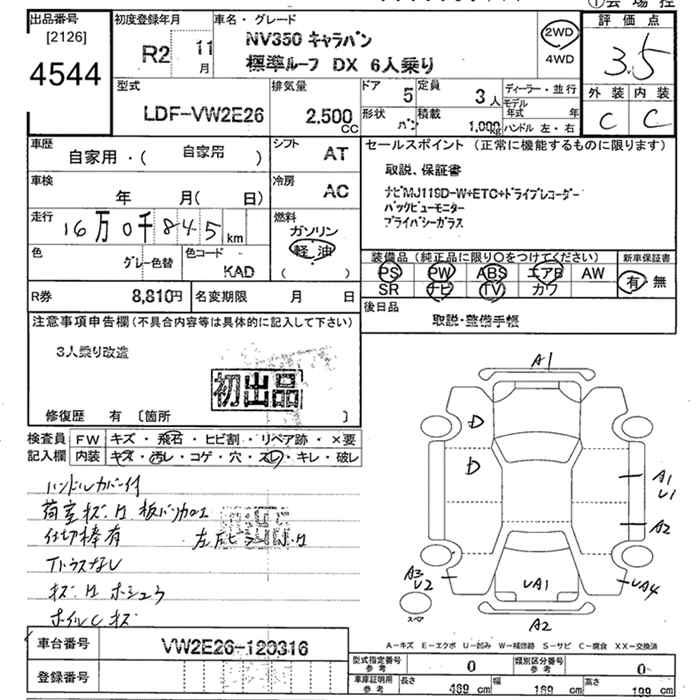 ①会場控
出品番号
[2126]
4544
初度登録年月
R2 11月
車名・グレード
NV350 キャラバン
標準ルーフ DX 6人乗り
2WD
4WD
評価点
3.5
外装 内装
C C
型式
LDF-VW2E26
排気量
2,500cc
ドア 5
定員 3人
形状 バン
積載 1,000kg
ディーラー・並行
モデル
年式 年
ハンドル 左・右
車歴
自家用・( 自家用 )
シフト AT
車検
年 月( 日)
冷房 AC
走行
16万0千845km
燃料
ガソリン
軽油
( )
色
グレー色替
色コード
KAD
R券 8,810円
名変期限 月 日
セールスポイント(正常に機能するものに限ります)
取説、保証書
ナビMJ119D-W+ETC+ドライブレコーダー
バックビューモニター
プライバシーガラス
装備品(純正品に限り○をつけてください)
新車保証書
PS PW ABS エアB AW
SR ナビ TV カワ
有・無
後日品
取説・整備手帳
注意事項申告欄(不具合内容等は具体的に記入して下さい)
3人乗り改造
初出品
修復歴 有 〔箇所 〕
検査員
記入欄
FW キズ・飛石・ヒビ割・リペア跡・×要
内装 キズ・汚レ・コゲ・穴・スレ・キレ・破レ
ハンドルカバー付
荷室キズ、H 板バン加工
仕切棒有
下トラスなし
キズ H ホシュウ
ホイルC キズ
A1
D
D
A1
U1
A2
A3
U2
UA1
UA4
スペア
A2
A-キズ E-エクボ U-凹み W-補修跡 S-サビ C-腐食 XX-交換済
車台番号
VW2E26-120316
登録番号
型式指定番号
参考
0
類別区分番号
参考
0
車庫証明用
参考
長さ 469 cm
幅 169 cm
高さ 199 cm